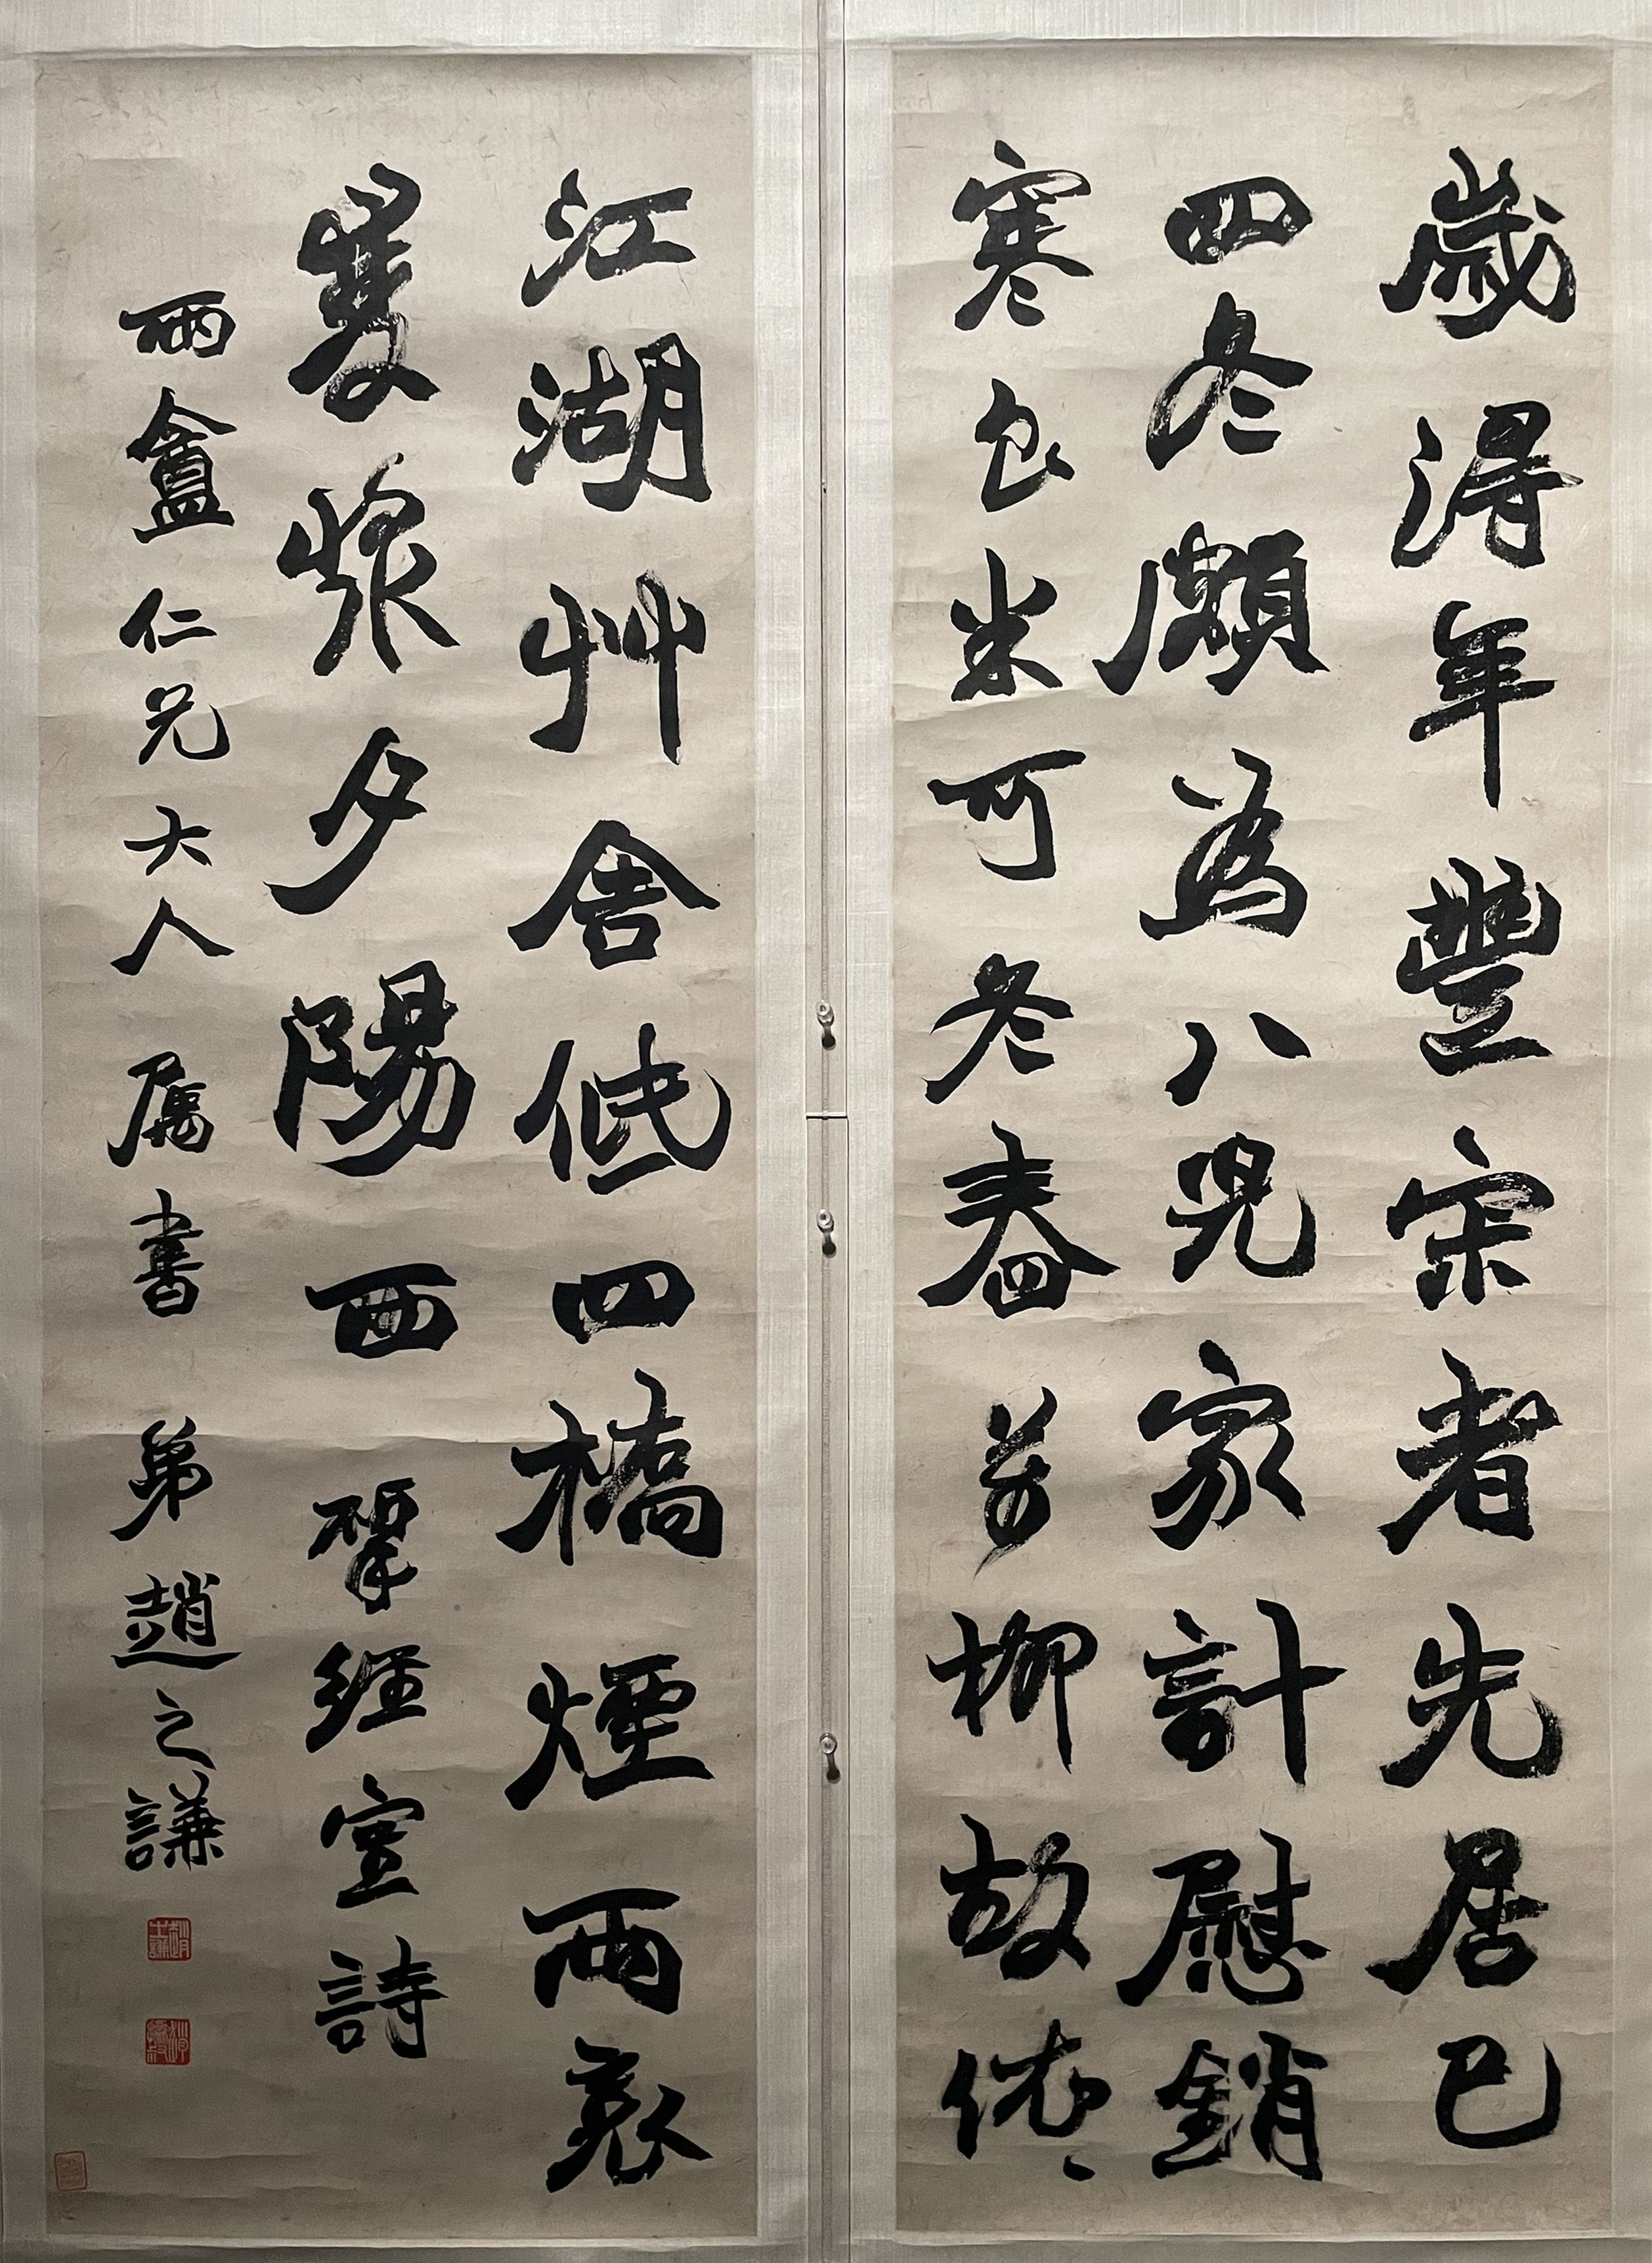 歲得年豐宗者先居巳
四冬頗為八兒家計慰銷
寒㠯米可冬舂萬柳故依〻
江湖艸舍低四橋煙雨裛
雙槳夕陽西 揅經室詩
雨盦仁兄大人屬書 弟趙之謙